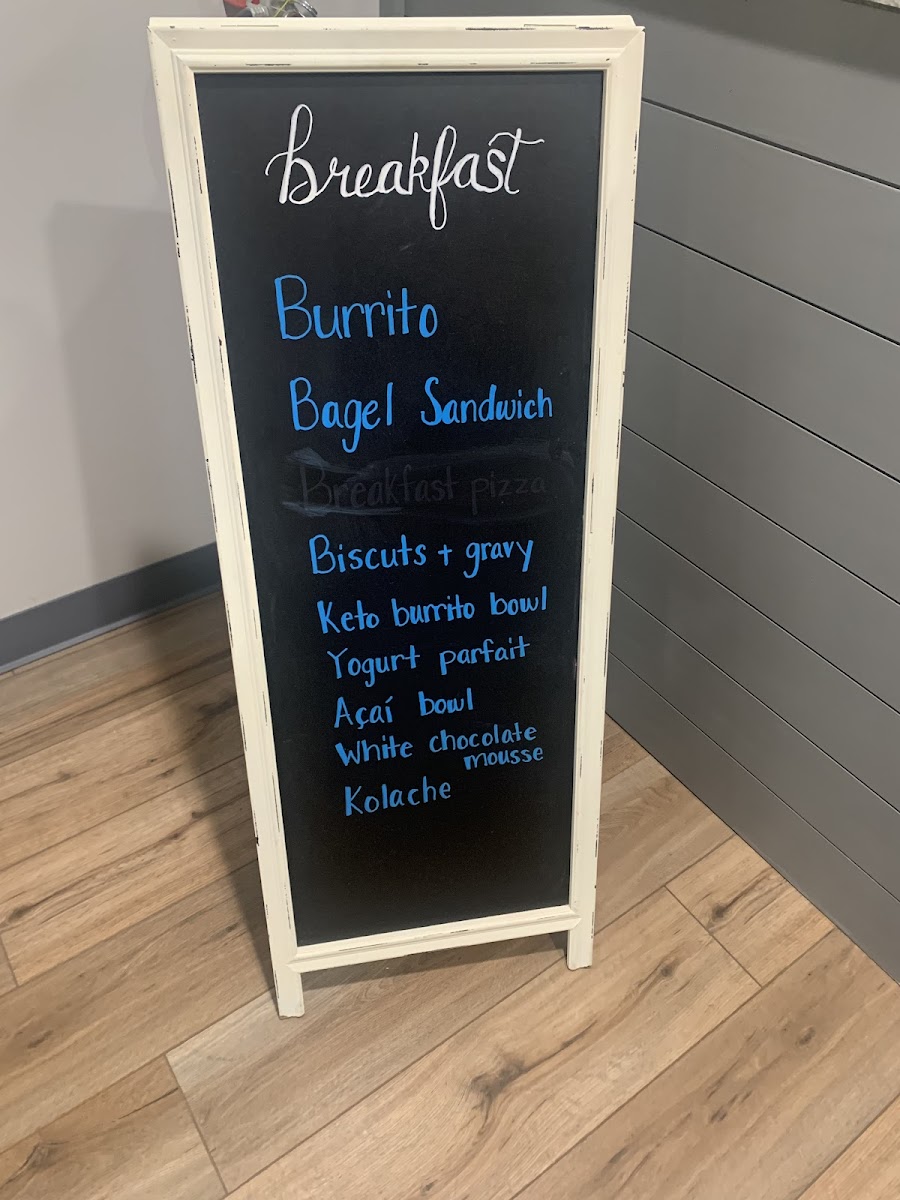 breakfast
Burrito
Bagel Sandwich
Breakfast pizza
Biscuts + gravy
Keto burrito bowl
Yogurt parfait
Açaí bowl
White chocolate
mousse
Kolache